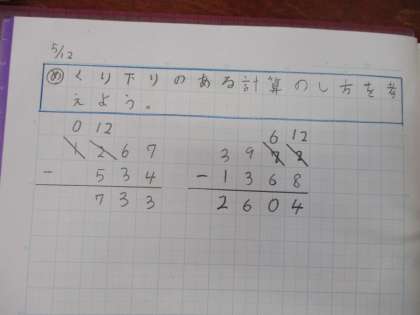 5/12
め くり下りのある計算のし方を考
えよう。
0 12
1 2 6 7
- 5 3 4
7 3 3
6 12
3 9 7 2
- 1 3 6 8
2 6 0 4